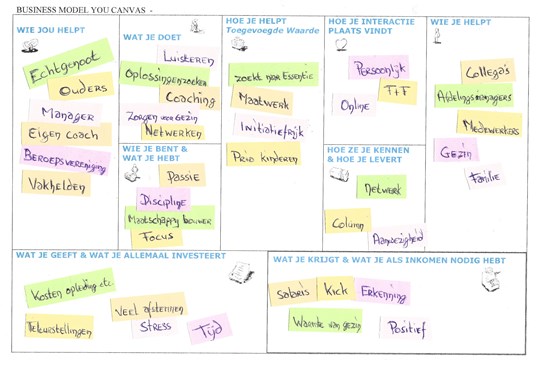 BUSINESS MODEL YOU CANVAS -
WIE JOU HELPT
Echtgenoot
Ouders
Manager
Eigen coach
Beroepsvereniging
Vakhelden
WAT JE DOET
Luisteren
Oplossingenzoeker
Coaching
Zorgen voor gezin
Netwerken
WIE JE BENT &
WAT JE HEBT
Passie
Discipline
Maatschappij bouwer
Focus
HOE JE HELPT
Toegevoegde Waarde
zoekt naar Essentie
Maatwerk
Initiatiefrijk
kinderen
HOE JE INTERACTIE
PLAATS VINDT
Persoonlijk
F+F
Online
HOE ZE JE KENNEN
& HOE JE LEVERT
Netwerk
Column
Aanwezigheid
WIE JE HELPT
Collega's
Afdelingsmanagers
Medewerkers
Gezin
Familie
WAT JE GEEFT & WAT JE ALLEMAAL INVESTEERT
Kosten opleiding etc.
Veel afstemmen
Teleurstellingen
STRESS
Tijd
WAT JE KRIJGT & WAT JE ALS INKOMEN NODIG HEBT
Salaris
Kick
Erkenning
Waarde van gezin
Positief